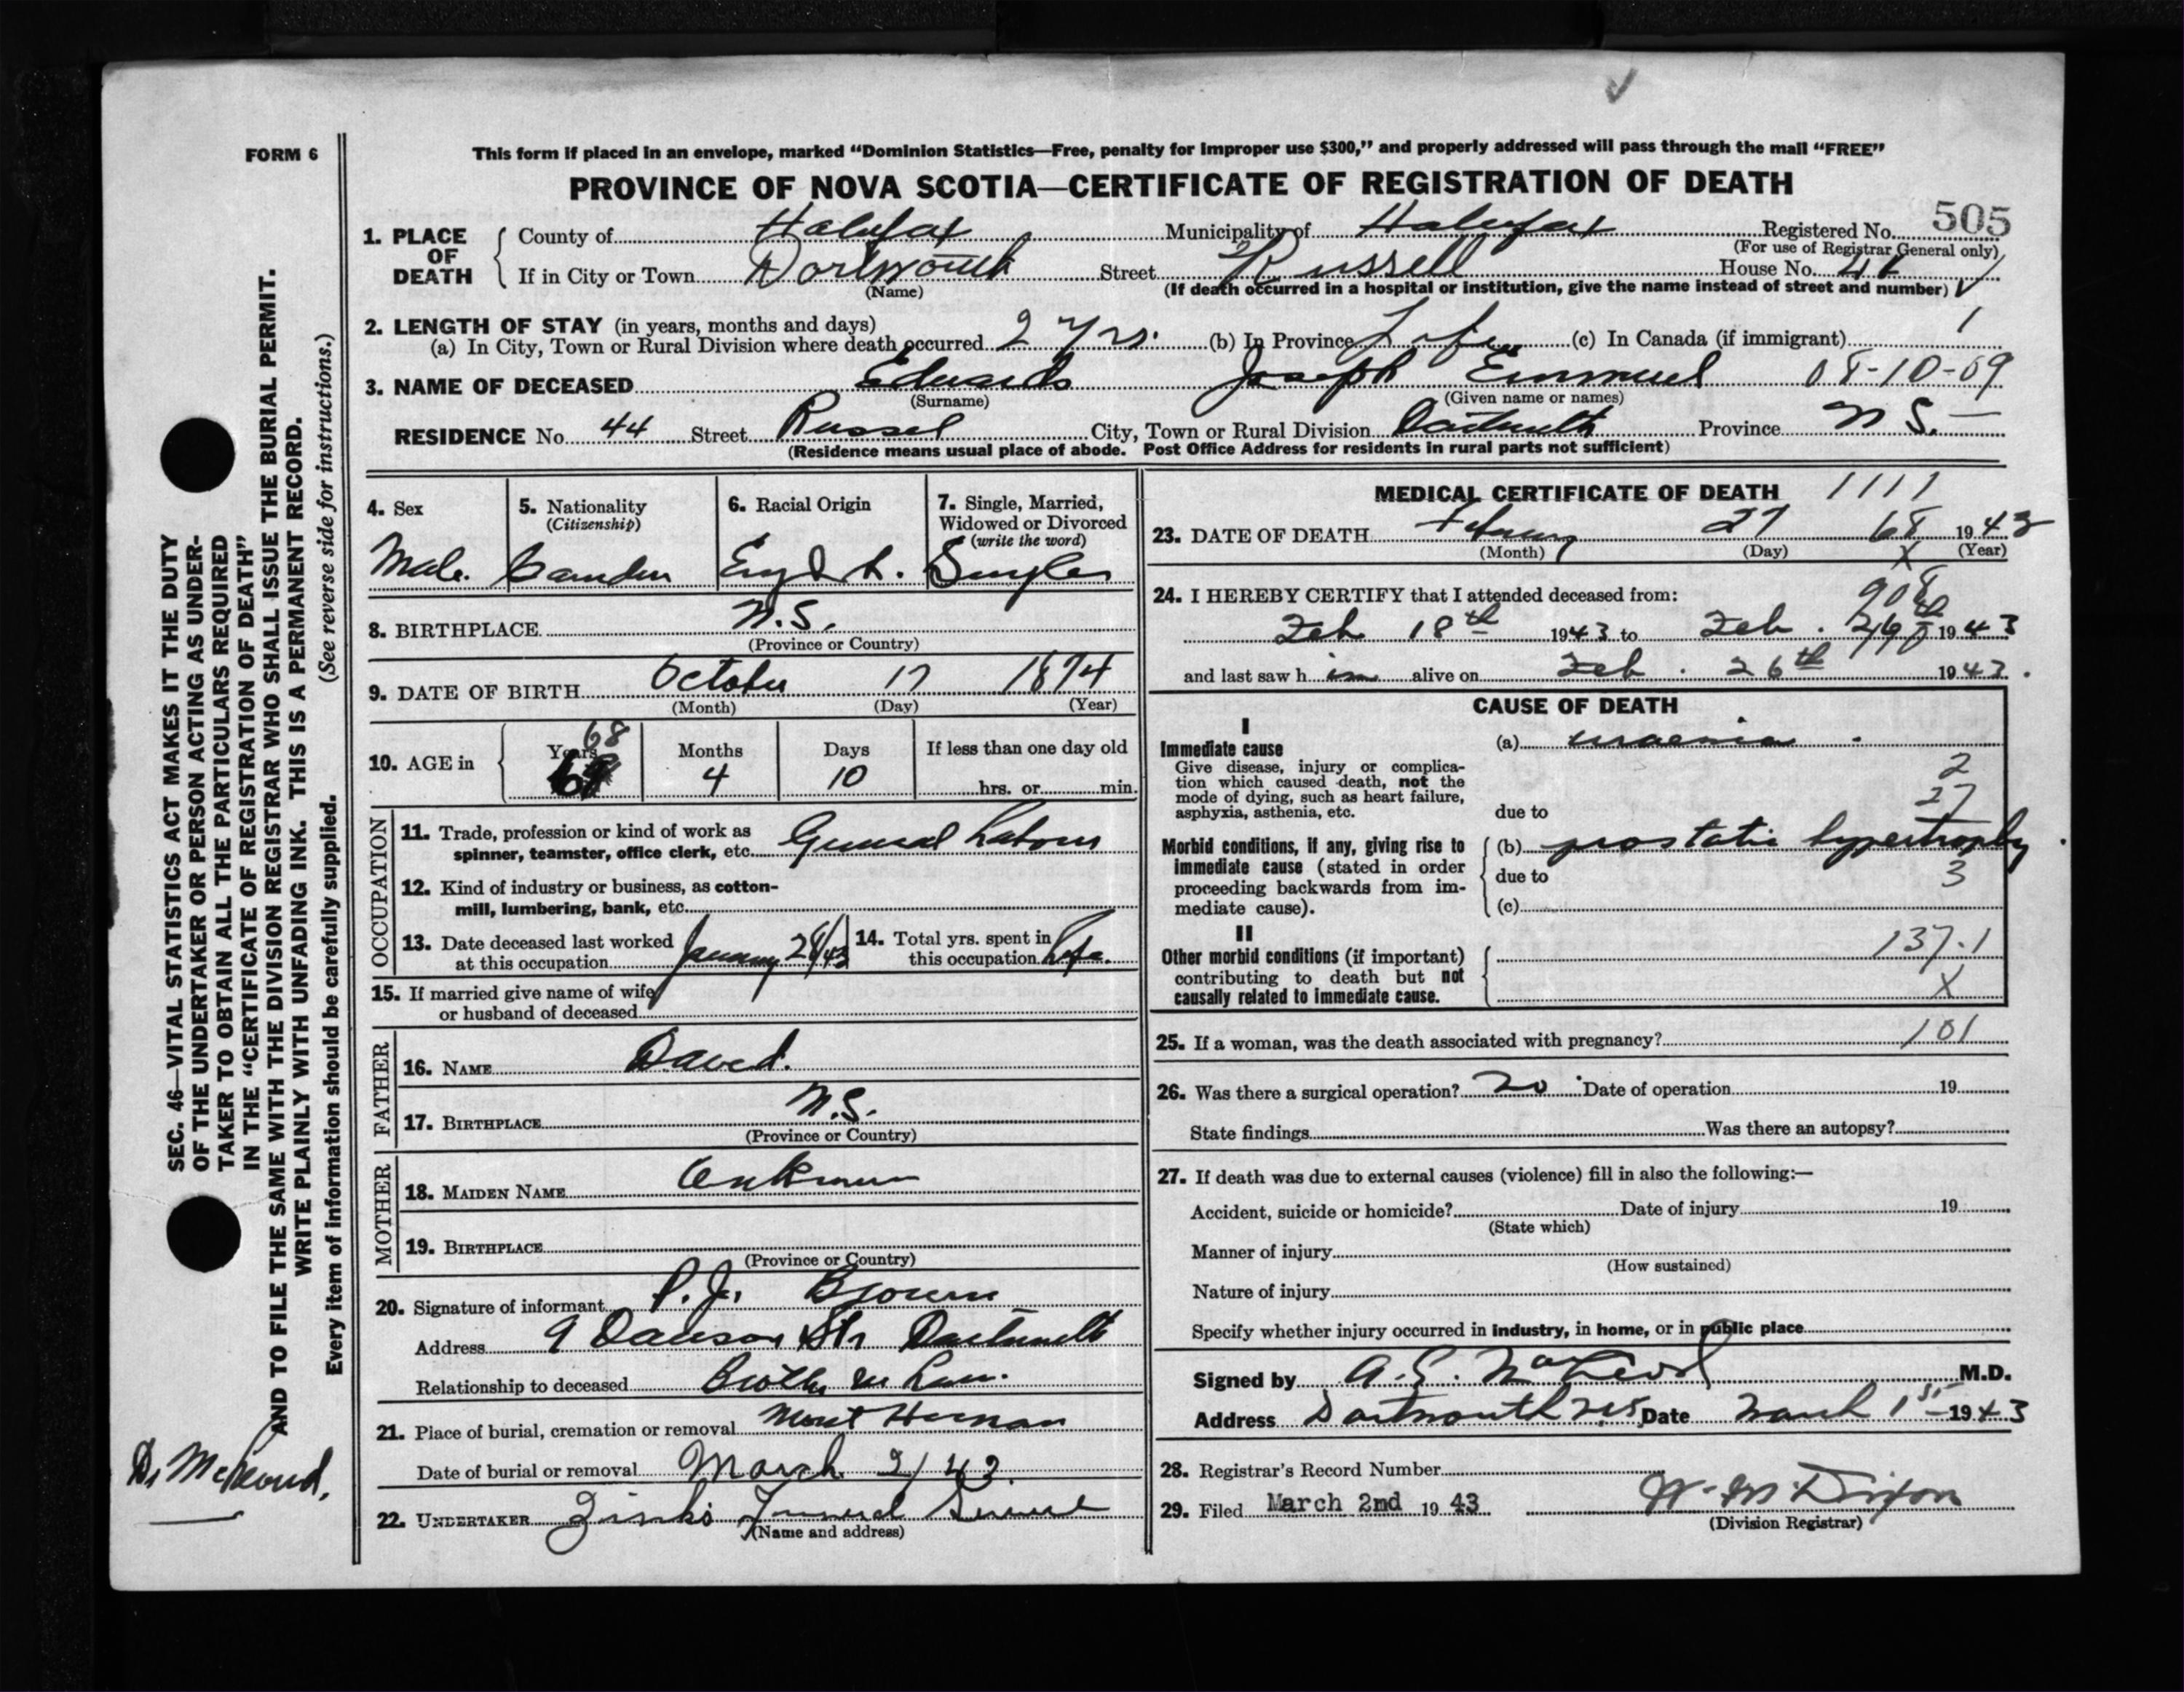 FORM 6
This form if placed in an envelope, marked “Dominion Statistics—Free, penalty for improper use $300,” and properly addressed will pass through the mail “FREE”
PROVINCE OF NOVA SCOTIA—CERTIFICATE OF REGISTRATION OF DEATH
1. PLACE OF DEATH
County of Halifax Municipality of Halifax Registered No. 505
(For use of Registrar General only)
If in City or Town Dartmouth Street Russell House No. 44
(Name) (If death occurred in a hospital or institution, give the name instead of street and number)
2. LENGTH OF STAY (in years, months and days)
(a) In City, Town or Rural Division where death occurred 2 yrs. (b) In Province Life (c) In Canada (if immigrant) 1
3. NAME OF DECEASED Edwards Joseph Emmuel 08-10-09
(Surname) (Given name or names)
RESIDENCE No. 44 Street Russel City, Town or Rural Division Dartmouth Province N S.
(Residence means usual place of abode. Post Office Address for residents in rural parts not sufficient)
4. Sex
Male.
5. Nationality
(Citizenship)
6. Racial Origin
English.
7. Single, Married,
Widowed or Divorced
(write the word)
Single
8. BIRTHPLACE N.S.
(Province or Country)
9. DATE OF BIRTH October 17 1874
(Month) (Day) (Year)
10. AGE in
Years 68
Months 4
Days 10
If less than one day old
hrs. or min.
OCCUPATION
11. Trade, profession or kind of work as
spinner, teamster, office clerk, etc. General Labour
12. Kind of industry or business, as cotton-
mill, lumbering, bank, etc.
13. Date deceased last worked
at this occupation January 28/43
14. Total yrs. spent in
this occupation Life.
15. If married give name of wife
or husband of deceased
FATHER
16. NAME David.
17. BIRTHPLACE N.S.
(Province or Country)
MOTHER
18. MAIDEN NAME Unknown
19. BIRTHPLACE
(Province or Country)
20. Signature of informant P.J. Brown
Address 9 Dawson Str Dartmouth
Relationship to deceased Brother in Law.
21. Place of burial, cremation or removal Mount Herman
Date of burial or removal March 2/43.
22. UNDERTAKER Zinks Funeral Service
(Name and address)
MEDICAL CERTIFICATE OF DEATH 1111
23. DATE OF DEATH February 27 68 1943
(Month) (Day) X (Year)
24. I HEREBY CERTIFY that I attended deceased from:
908
Feb 18th 1943 to Feb. 26th 1943
and last saw h im alive on Feb. 26th 1943.
CAUSE OF DEATH
I
Immediate cause
Give disease, injury or complica-
tion which caused death, not the
mode of dying, such as heart failure,
asphyxia, asthenia, etc.
(a) uraemia.
2
27
due to
Morbid conditions, if any, giving rise to
immediate cause (stated in order
proceeding backwards from im-
mediate cause).
(b) prostatic hypertrophy.
due to 3
(c)
II
Other morbid conditions (if important)
contributing to death but not
causally related to immediate cause.
137.1
X
25. If a woman, was the death associated with pregnancy? 101
26. Was there a surgical operation? no Date of operation 19
State findings Was there an autopsy?
27. If death was due to external causes (violence) fill in also the following:—
Accident, suicide or homicide? Date of injury 19
(State which)
Manner of injury
(How sustained)
Nature of injury
Specify whether injury occurred in industry, in home, or in public place
Signed by A. S. MacLeod M.D.
Address Dartmouth N.S. Date March 1st 1943
28. Registrar's Record Number
29. Filed March 2nd 1943 W. M. Dixon
(Division Registrar)
SEC. 46—VITAL STATISTICS ACT MAKES IT THE DUTY
OF THE UNDERTAKER OR PERSON ACTING AS UNDER-
TAKER TO OBTAIN ALL THE PARTICULARS REQUIRED
IN THE “CERTIFICATE OF REGISTRATION OF DEATH”
AND TO FILE THE SAME WITH THE DIVISION REGISTRAR WHO SHALL ISSUE THE BURIAL PERMIT.
WRITE PLAINLY WITH UNFADING INK. THIS IS A PERMANENT RECORD.
Every item of information should be carefully supplied. (See reverse side for instructions.)
Dr McLeod.